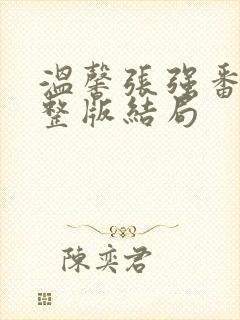 溫馨張强番
整版結局
陳奕君